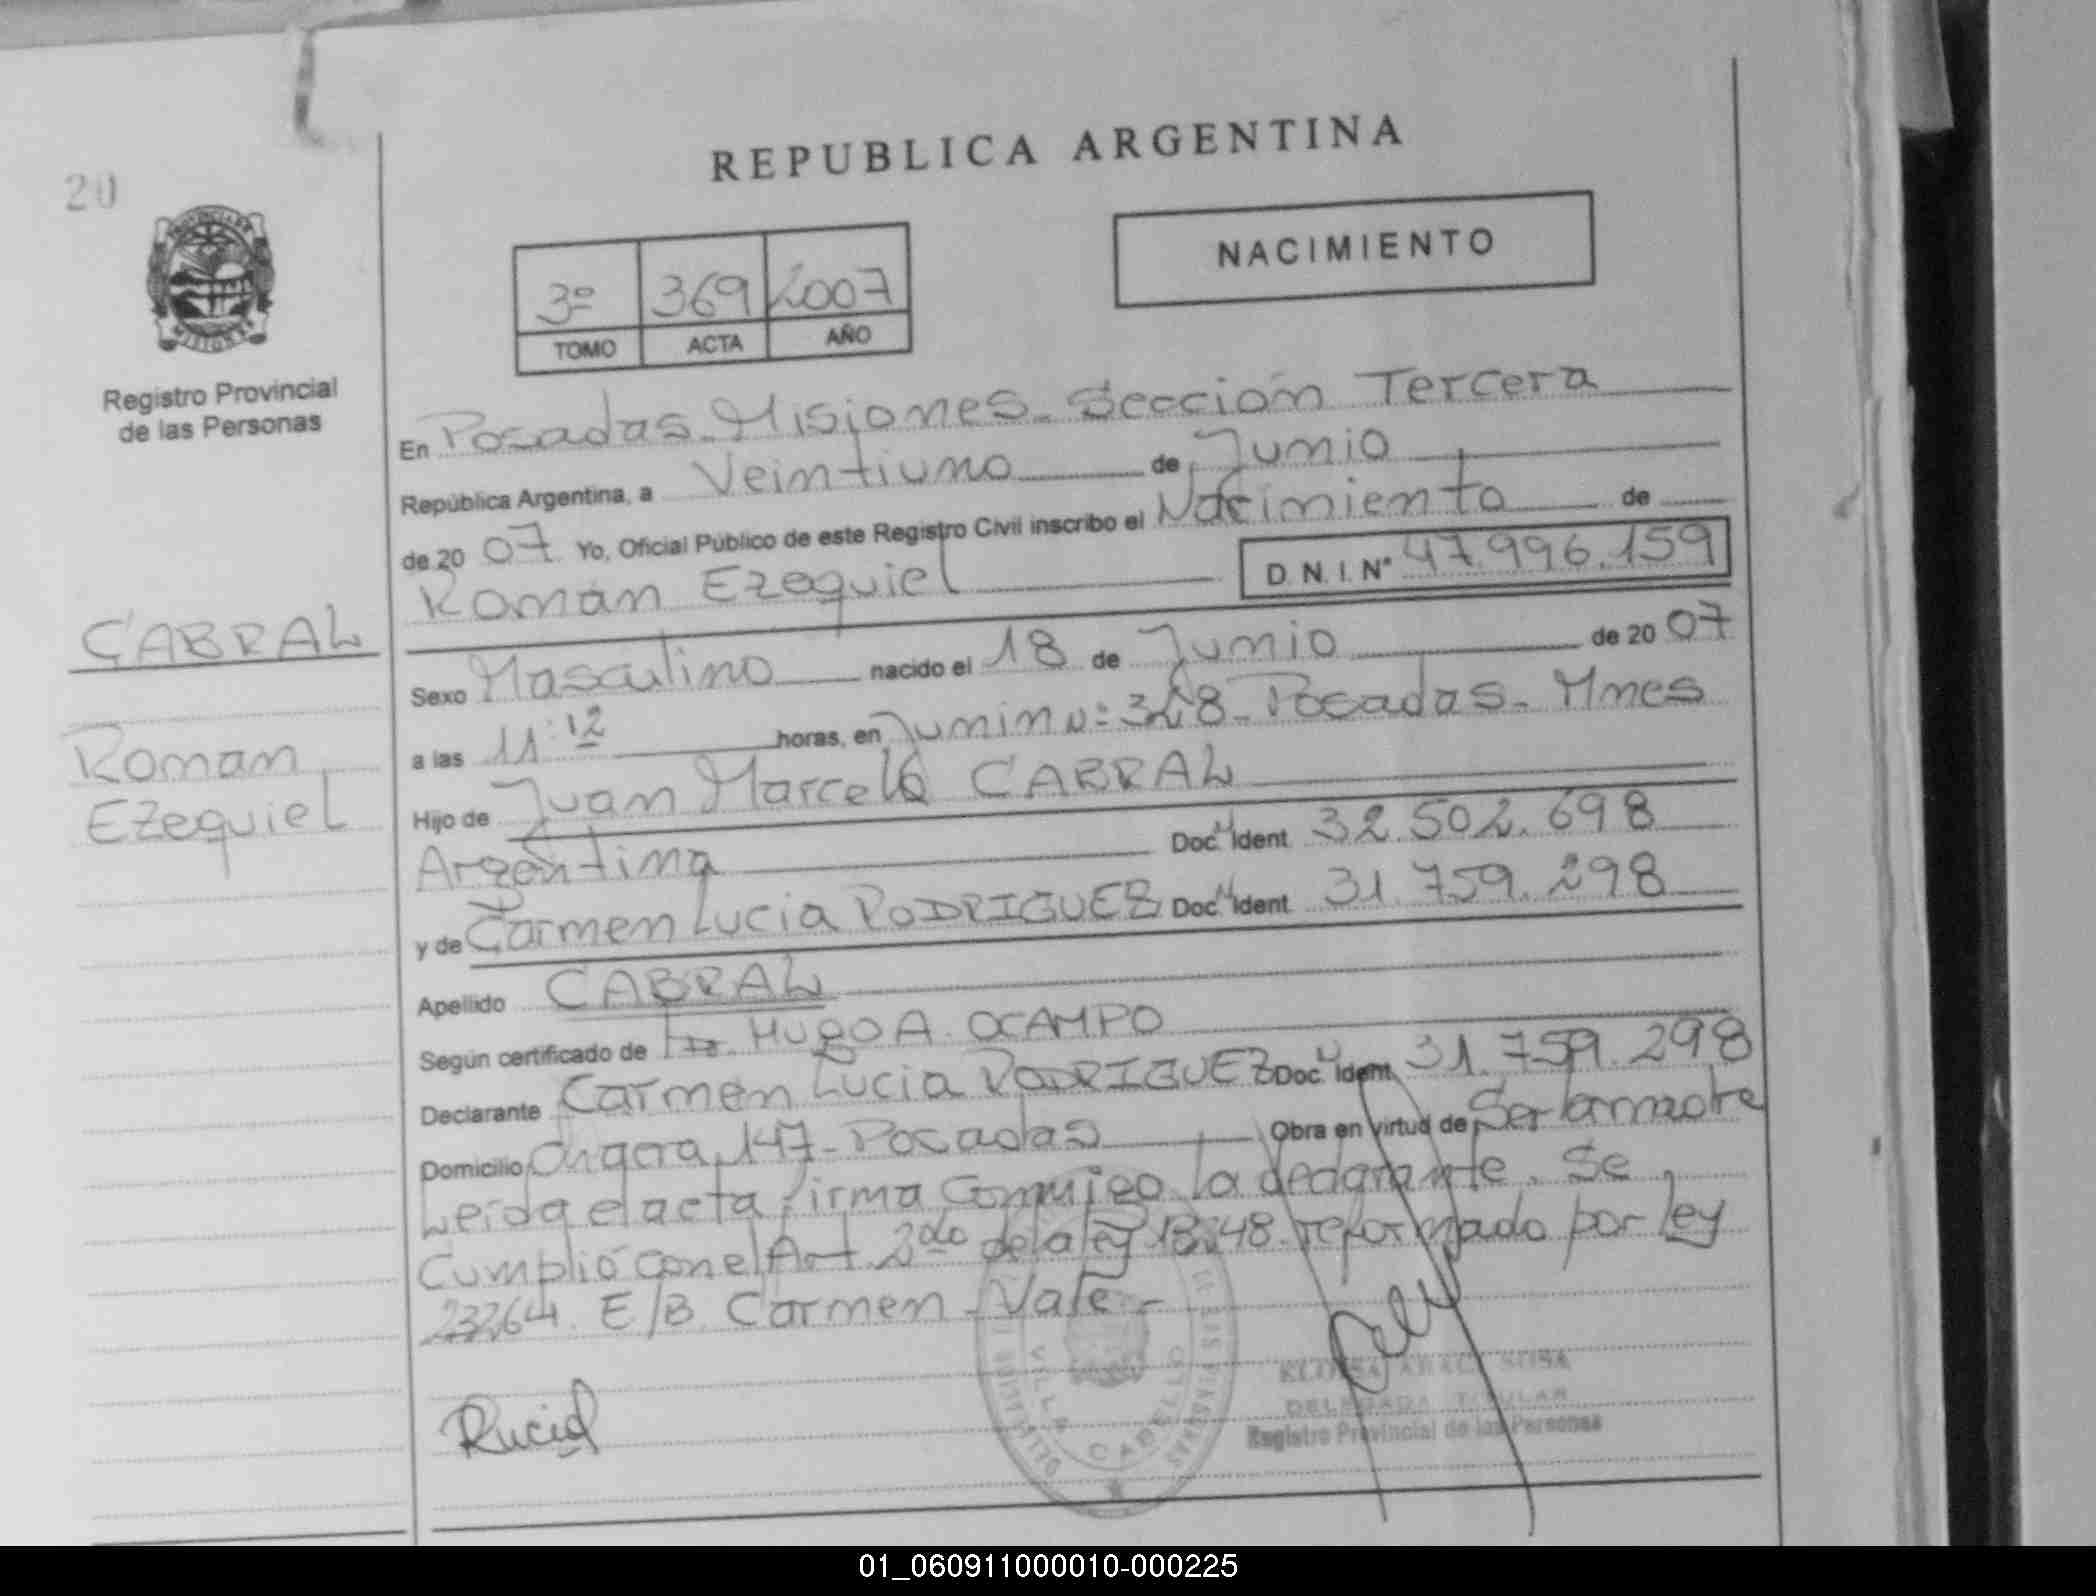 20
REPUBLICA ARGENTINA
NACIMIENTO
3º 369 2007
TOMO ACTA AÑO
Registro Provincial
de las Personas
CABRAL
Roman
Ezequiel
En Posadas - Misiones - Sección Tercera
República Argentina, a Veintiuno de Junio
de 20 07 Yo, Oficial Público de este Registro Civil inscribo el Nacimiento de
Román Ezequiel D. N. I. Nº 47.996.159
Sexo Masculino nacido el 18 de Junio de 20 07
a las 11:12 horas, en Junin Nº 328 - Posadas - Mnes
Hijo de Juan Marcelo CABRAL
Argentina Doc. Ident 32.502.698
y de Carmen Lucia RODRIGUEZ Doc. Ident 31.759.298
Apellido CABRAL
Según certificado de HUGO A. OCAMPO
Declarante Carmen Lucia RODRIGUEZ Doc. Ident 31.759.298
Domicilio 147 - Posadas Obra en virtud de Ser la madre
Leída el acta firma conmigo la declarante. Se
Cumplió con el Art. 2do de la ley reformado por ley
23264. E/B. Carmen - Vale -
VILLA CABELLO
SOSA
DELEGADA TITULAR
Registro Provincial de las Personas
01_060911000010-000225